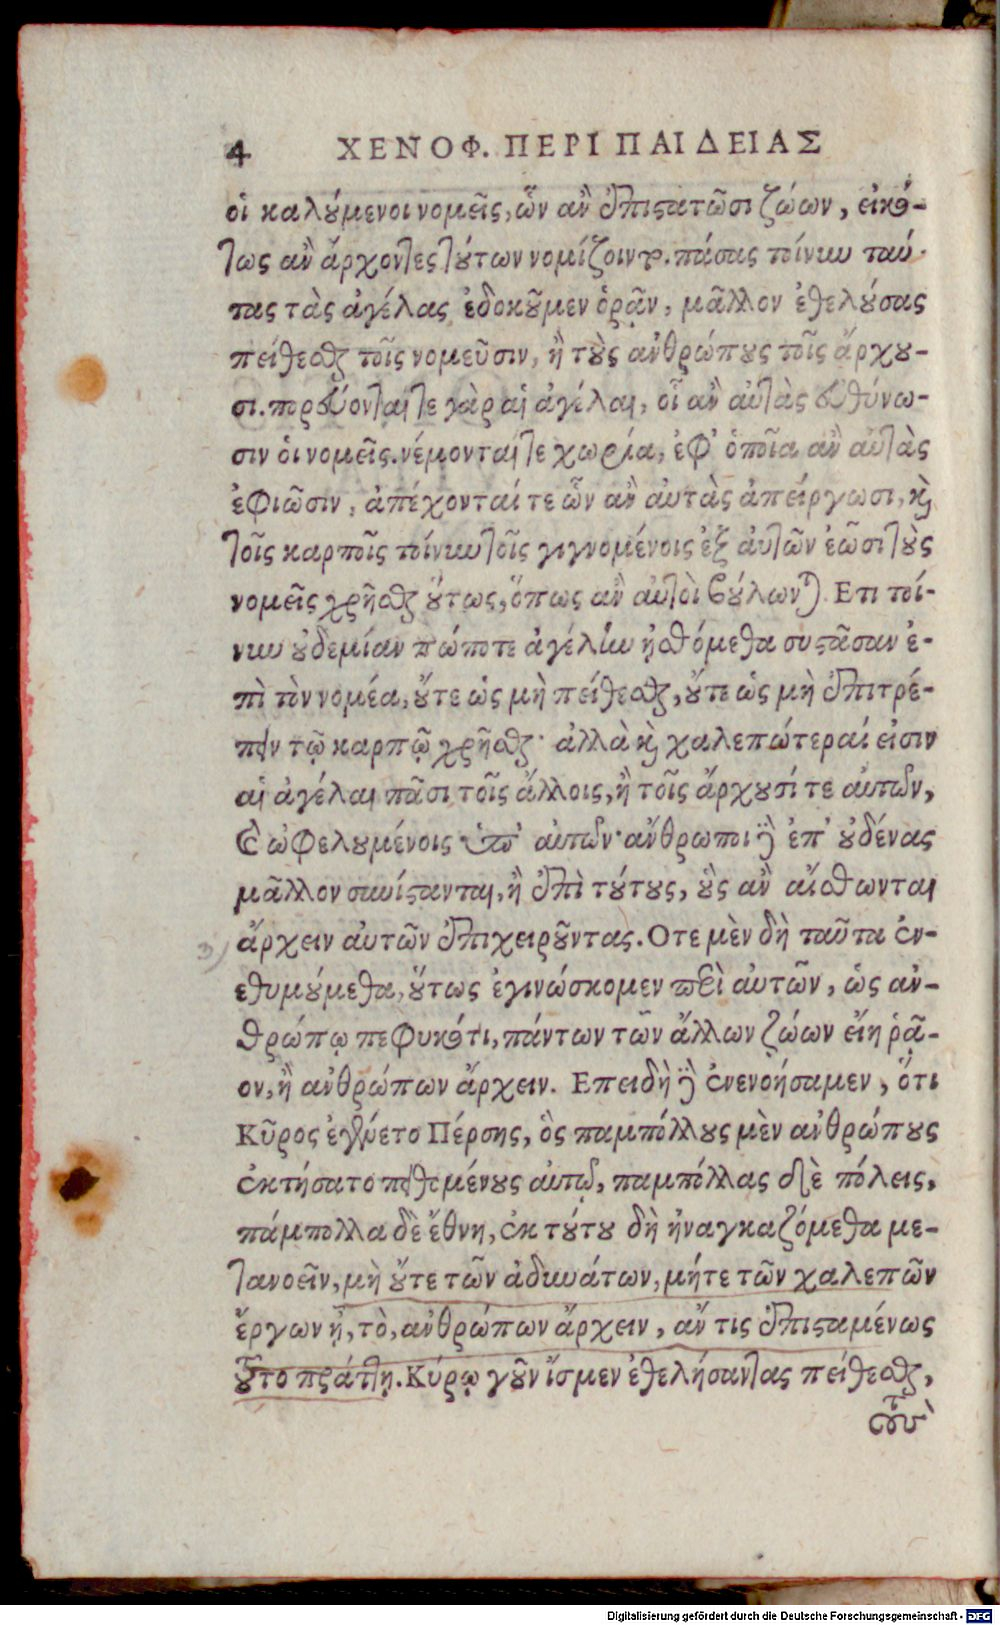 4 ΧΕΝΟΦ. ΠΕΡΙ ΠΑΙΔΕΙΑΣ
οἱ καλούμενοι νομεῖς, ὧν ἂν ἐπιστατῶσι ζώων, εἰκό-
τως ἂν ἄρχοντες τούτων νομίζοιντο. πάσας τοίνυν ταύ-
τας τὰς ἀγέλας ἐδοκοῦμεν ὁρᾶν, μᾶλλον ἐθελούσας
πείθεσθαι τοῖς νομεῦσιν, ἢ τοὺς ἀνθρώπους τοῖς ἄρχου-
σι. πορεύονταί τε γὰρ αἱ ἀγέλαι, οἷ ἂν αὐτὰς εὐθύνω-
σιν οἱ νομεῖς. νέμονταί τε χωρία, ἐφ' ὁποῖα ἂν αὐτὰς
ἐφιῶσιν, ἀπέχονταί τε ὧν ἂν αὐτὰς ἀπείργωσι, καὶ
τοῖς καρποῖς τοίνυν τοῖς γιγνομένοις ἐξ αὐτῶν ἐῶσι τοὺς
νομεῖς χρῆσθαι οὕτως, ὅπως ἂν αὐτοὶ βούλωνται. Ετι τοί-
νυν οὐδεμίαν πώποτε ἀγέλην ᾐσθόμεθα συστᾶσαν ἐ-
πὶ τὸν νομέα, οὔτε ὡς μὴ πείθεσθαι, οὔτε ὡς μὴ ἐπιτρέ-
πειν τῷ καρπῷ χρῆσθαι· ἀλλὰ καὶ χαλεπώτεραί εἰσιν
αἱ ἀγέλαι πᾶσι τοῖς ἄλλοις, ἢ τοῖς ἄρχουσί τε αὐτῶν,
καὶ ὠφελουμένοις ὑπ' αὐτῶν· ἄνθρωποι δὲ ἐπ' οὐδένας
μᾶλλον συνίστανται, ἢ ἐπὶ τούτους, οὓς ἂν αἴσθωνται
ἄρχειν αὐτῶν ἐπιχειροῦντας. Οτε μὲν δὴ ταῦτα ἐν-
εθυμούμεθα, οὕτως ἐγινώσκομεν περὶ αὐτῶν, ὡς ἀν-
θρώπῳ πεφυκότι, πάντων τῶν ἄλλων ζώων εἴη ῥᾷ-
ον, ἢ ἀνθρώπων ἄρχειν. Επειδὴ δὲ ἐνενοήσαμεν, ὅτι
Κῦρος ἐγένετο Πέρσης, ὃς παμπόλλους μὲν ἀνθρώπους
ἐκτήσατο πειθομένους αὐτῷ, παμπόλλας δὲ πόλεις,
πάμπολλα δὲ ἔθνη, ἐκ τούτου δὴ ἠναγκαζόμεθα με-
τανοεῖν, μὴ οὔτε τῶν ἀδυνάτων, μήτε τῶν χαλεπῶν
ἔργων ᾖ, τὸ, ἀνθρώπων ἄρχειν, ἄν τις ἐπισταμένως
τοῦτο πράττῃ. Κύρῳ γοῦν ἴσμεν ἐθελήσαντας πείθεσθαι,
τοὺς
Digitalisierung gefördert durch die Deutsche Forschungsgemeinschaft - DFG